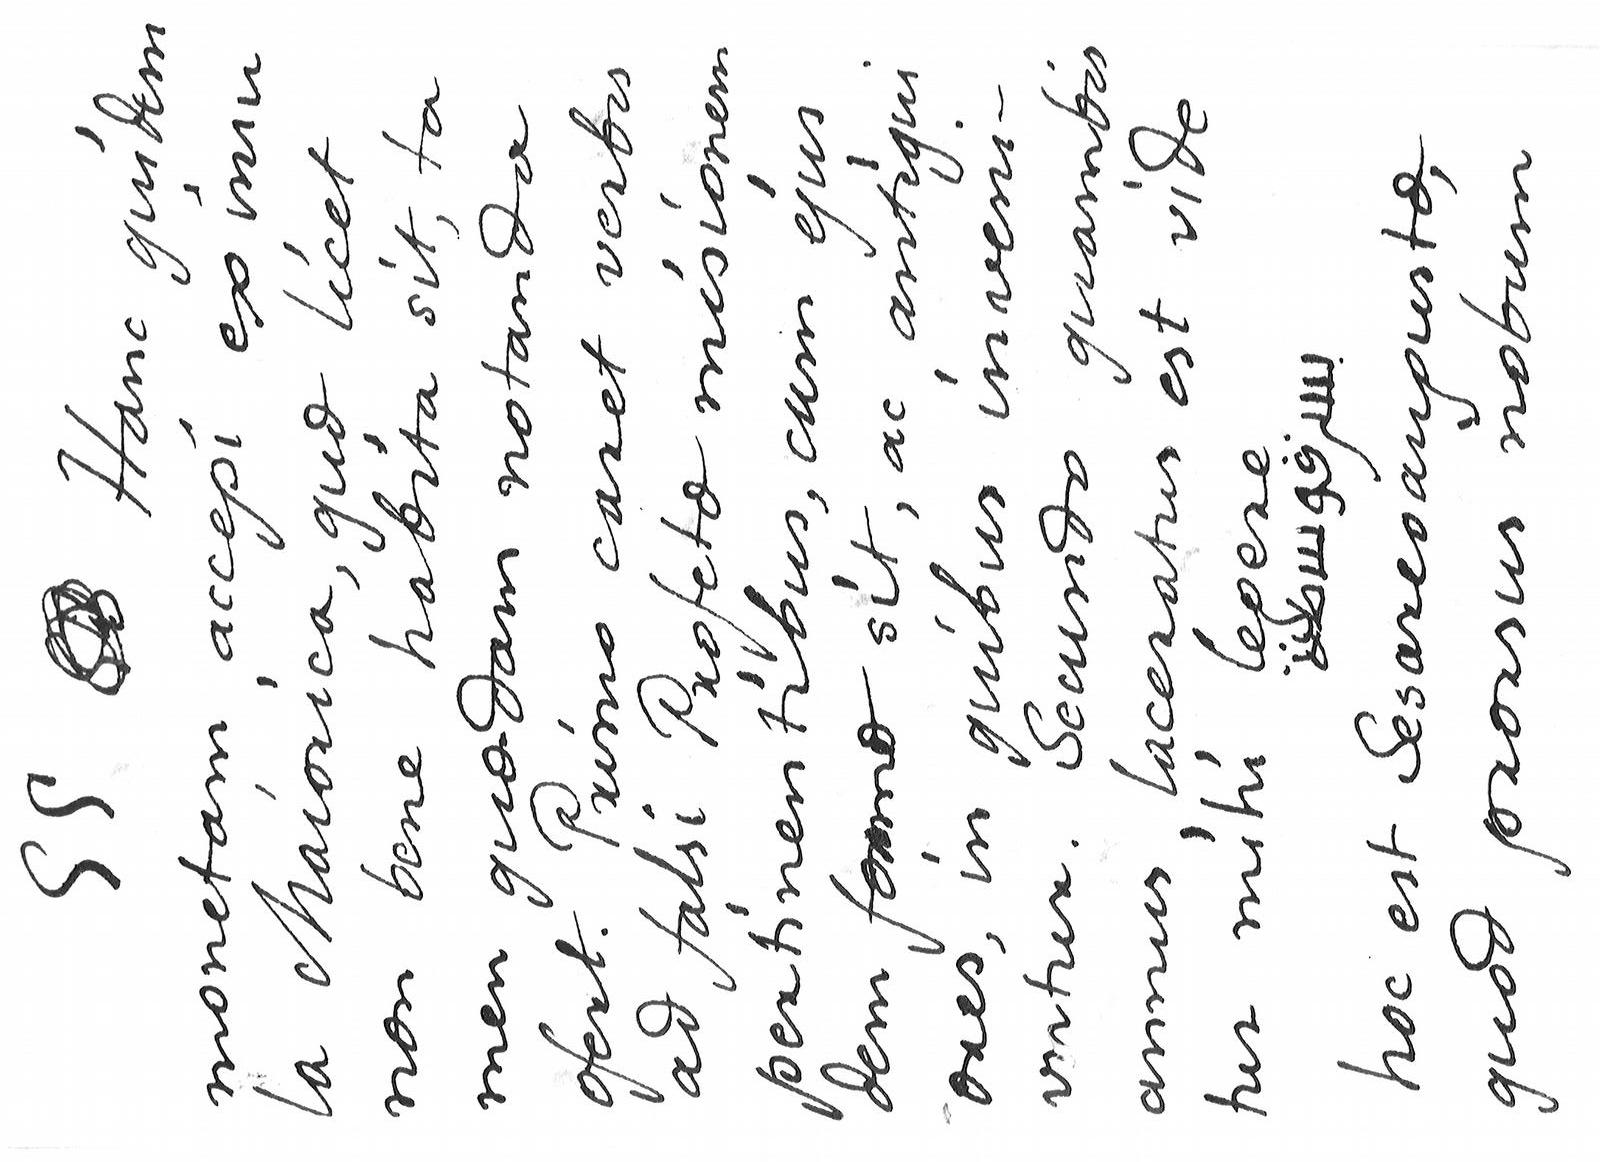 55 Hanc quidem
monetam accepi ex insu
la Maiorica, quod licet
non bene habita sit, ta
men quodam notanda
ofert. Primo caret verbis
ad falsi Profeta misionem
pertinentibus, cum ejus
dem forma sit, ac antiqui
ores, in quibus inveni-
untur. Secundo quambis
annus laceratus est vide
tur mihi legere
hoc est Sesareo aupusto,
quod prorsus nobum